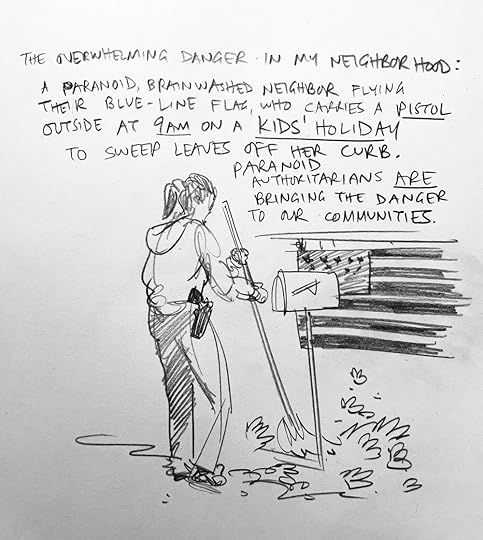 THE OVERWHELMING DANGER IN MY NEIGHBORHOOD:
A PARANOID, BRAINWASHED NEIGHBOR FLYING
THEIR BLUE-LINE FLAG, WHO CARRIES A PISTOL
OUTSIDE AT 9AM ON A KIDS' HOLIDAY
TO SWEEP LEAVES OFF HER CURB.
PARANOID
AUTHORITARIANS ARE
BRINGING THE DANGER
TO OUR COMMUNITIES.